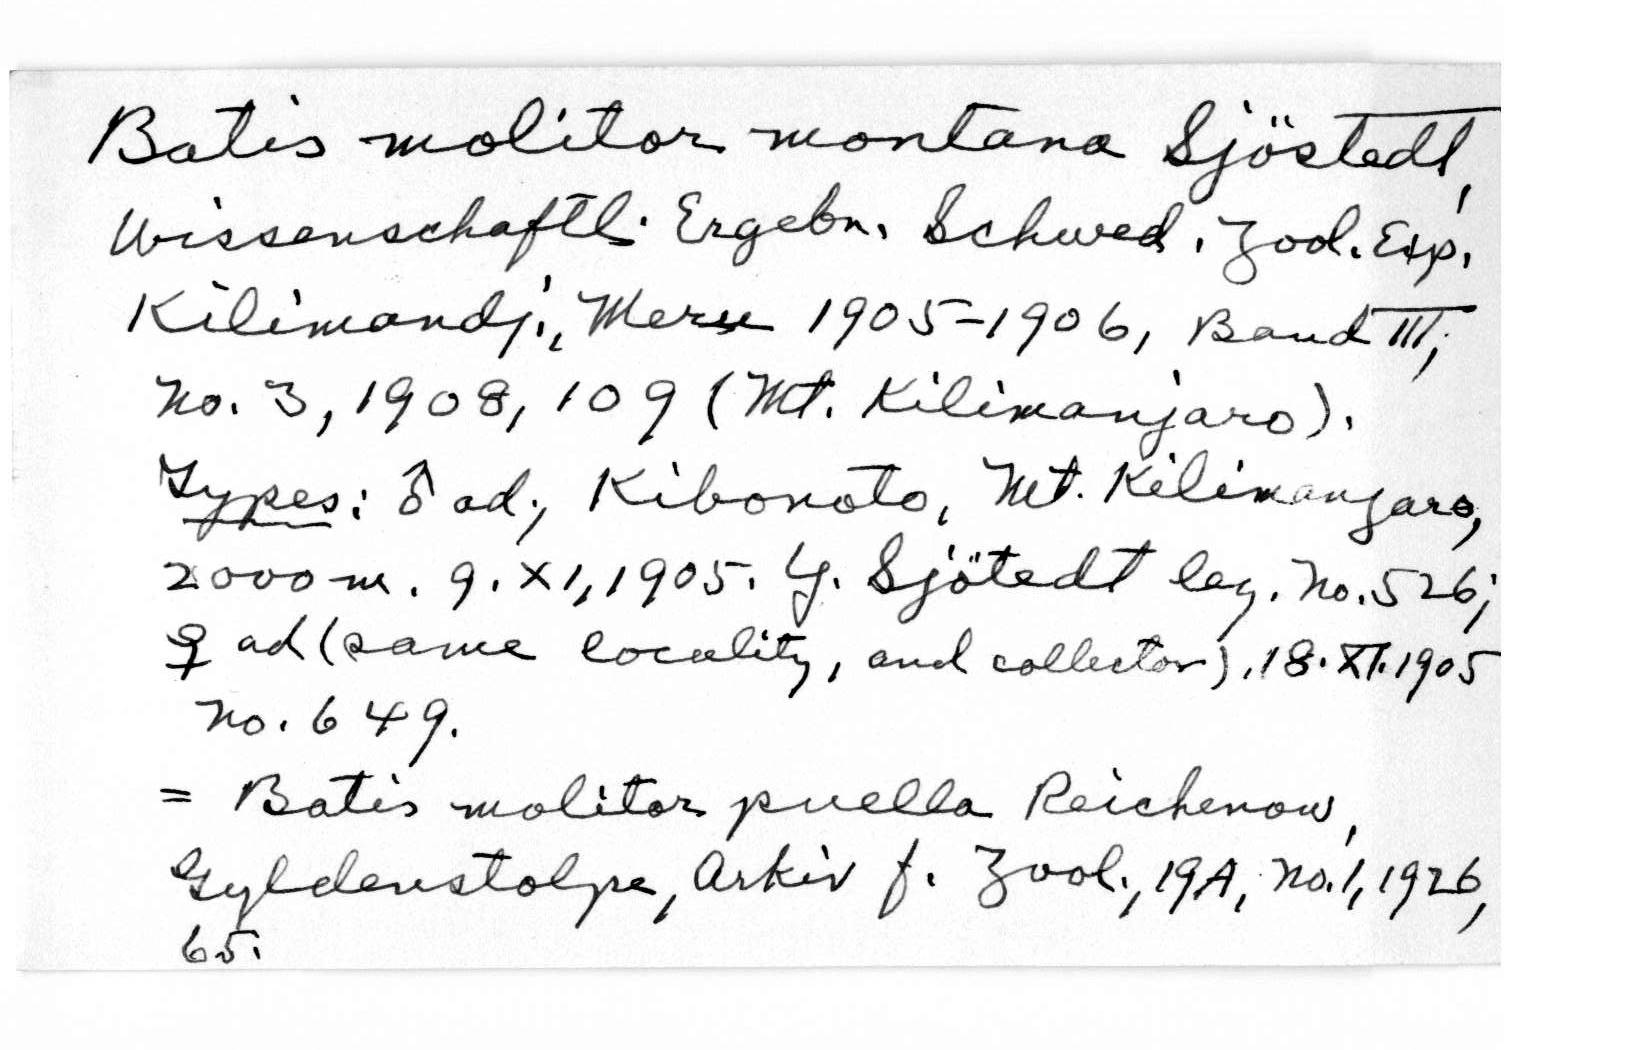 Batis molitor montana Sjöstedt,
Wissenschaftl. Ergebn. Schwed. Zool. Exp.
Kilimandj., Meru 1905-1906, Band III,
No. 3, 1908, 109 (Mt. Kilimanjaro).
Types: ♂ ad; Kibonoto, Mt. Kilimanjaro,
2000 m. 9. XI, 1905. Y. Sjötedt leg. No. 526;
♀ ad (same locality, and collector), 18. XI. 1905
No. 649.
= Batis molitor puella Reichenow,
Gyldenstolpe, Arkiv f. Zool., 19A, No. 1, 1926,
65.